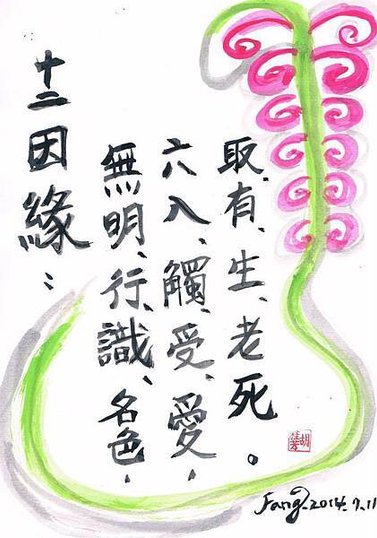 十二因緣：
無明、行、識、名色、
六入、觸、受、愛、
取、有、生、老死。
Fang 2014.7.11